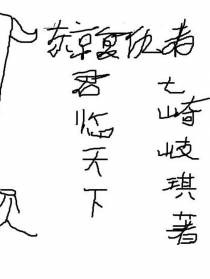 东京复仇者
君临天下
七崎岐琪著